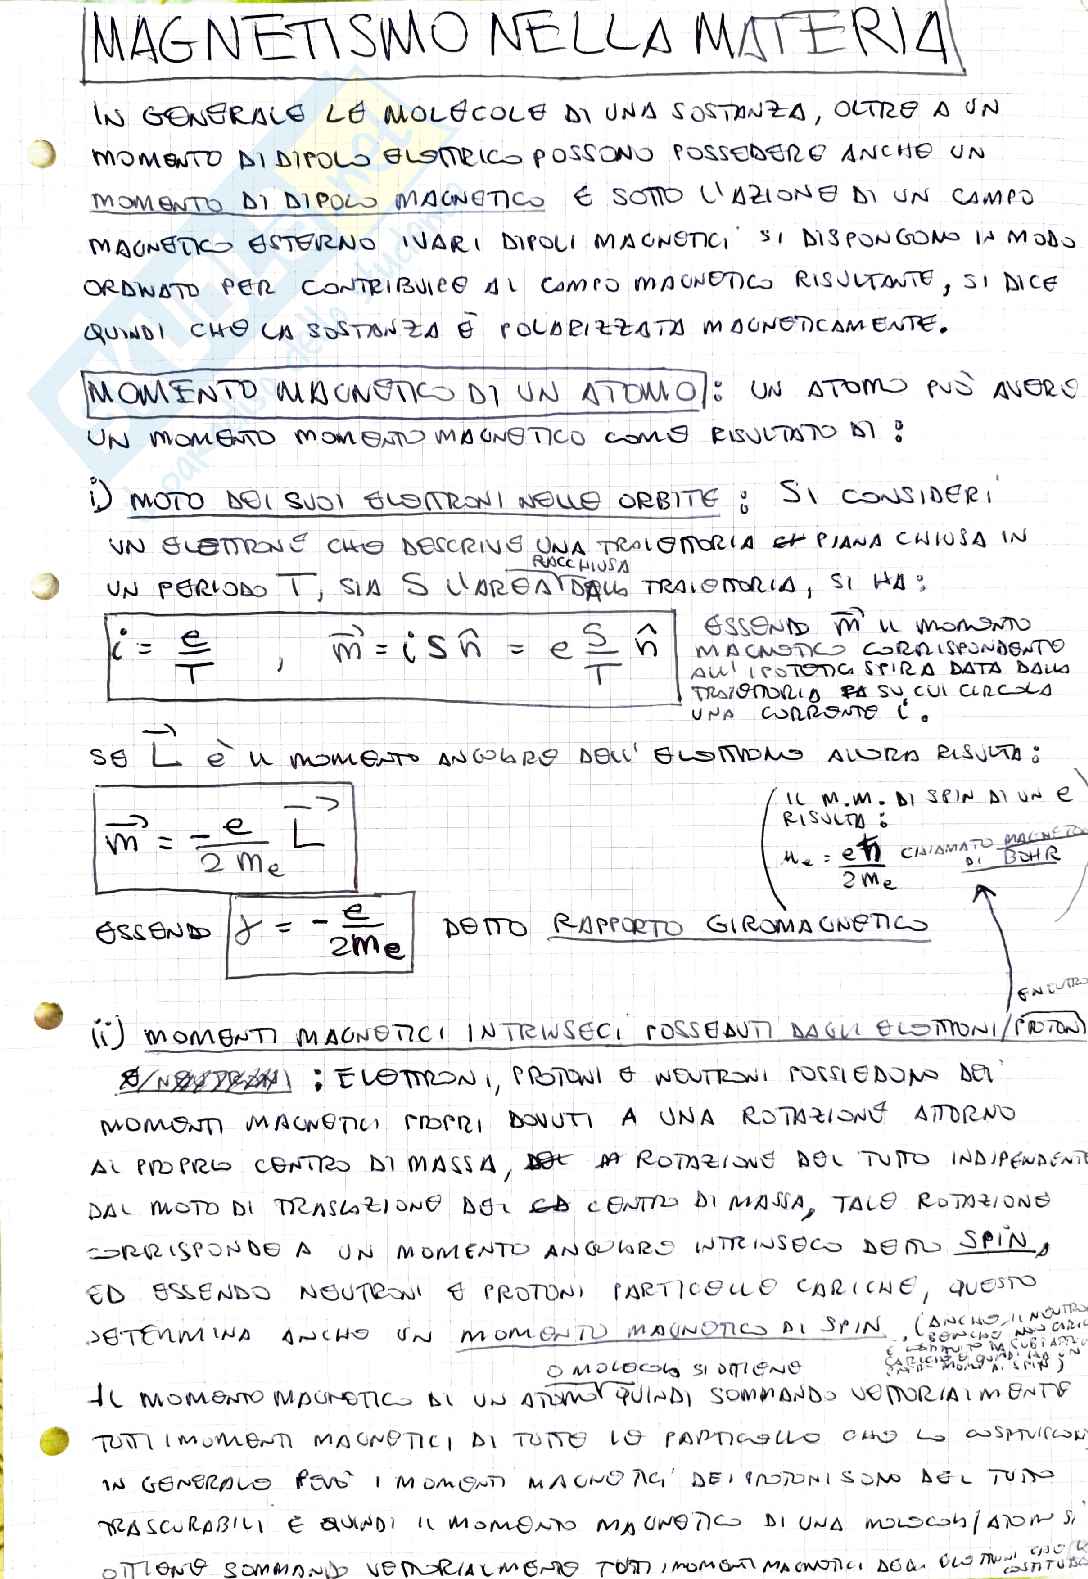 MAGNETISMO NELLA MATERIA
IN GENERALE LE MOLECOLE DI UNA SOSTANZA, OLTRE A UN
MOMENTO DI DIPOLO ELETTRICO POSSONO POSSEDERE ANCHE UN
MOMENTO DI DIPOLO MAGNETICO E SOTTO L'AZIONE DI UN CAMPO
MAGNETICO ESTERNO I VARI DIPOLI MAGNETICI SI DISPONGONO IN MODO
ORDINATO PER CONTRIBUIRE AL CAMPO MAGNETICO RISULTANTE, SI DICE
QUINDI CHE LA SOSTANZA È POLARIZZATA MAGNETICAMENTE.
MOMENTO MAGNETICO DI UN ATOMO: UN ATOMO PUÒ AVERE
UN MOMENTO MOMENTO MAGNETICO COME RISULTATO DI:
i) MOTO DEI SUOI ELETTRONI NELLE ORBITE: SI CONSIDERI
UN ELETTRONE CHE DESCRIVE UNA TRAIETTORIA PIANA CHIUSA IN
RACCHIUSA
UN PERIODO T, SIA S L'AREA DALLA TRAIETTORIA, SI HA:
i = e/T , m⃗ = i S n̂ = e S/T n̂
ESSENDO m⃗ IL MOMENTO
MAGNETICO CORRISPONDENTE
ALL'IPOTETICA SPIRA DATA DALLA
TRAIETTORIA SU CUI CIRCOLA
UNA CORRENTE i.
SE L⃗ È IL MOMENTO ANGOLARE DELL'ELETTRONE ALLORA RISULTA:
m⃗ = -e/2me L⃗
(IL M.M. DI SPIN DI UN e
RISULTA:
μe = eħ/2me CHIAMATO MAGNETONE
DI BOHR
ESSENDO γ = - e/2me DETTO RAPPORTO GIROMAGNETICO
E NEUTRO
ii) MOMENTI MAGNETICI INTRINSECI POSSEDUTI DAGLI ELETTRONI/PROTONI
: ELETTRONI, PROTONI E NEUTRONI POSSIEDONO DEI
MOMENTI MAGNETICI PROPRI DOVUTI A UNA ROTAZIONE ATTORNO
AL PROPRIO CENTRO DI MASSA, ROTAZIONE DEL TUTTO INDIPENDENTE
DAL MOTO DI TRASLAZIONE DEL CENTRO DI MASSA, TALE ROTAZIONE
CORRISPONDE A UN MOMENTO ANGOLARE INTRINSECO DETTO SPIN,
ED ESSENDO NEUTRONI E PROTONI PARTICELLE CARICHE, QUESTO
DETERMINA ANCHE UN MOMENTO MAGNETICO DI SPIN. (ANCHE IL NEUTRO
BENCHE NON CARIC
O MOLECOLA SI OTTIENE
IL MOMENTO MAGNETICO DI UN ATOMO QUINDI SOMMANDO VETTORIALMENTE
TUTTI I MOMENTI MAGNETICI DI TUTTE LE PARTICELLE CHE LO COSTITUISCON
IN GENERALE PERÒ I MOMENTI MAGNETICI DEI PROTONI SONO DEL TUTTO
TRASCURABILI E QUINDI IL MOMENTO MAGNETICO DI UNA MOLECOLA/ATOMO SI
OTTIENE SOMMANDO VETTORIALMENTE TUTTI I MOMENTI MAGNETICI DEGLI ELETTRONI CHE LO